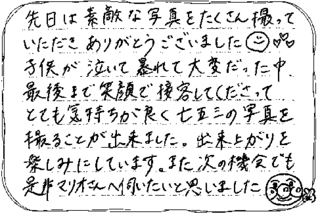 先日は素敵な写真をたくさん撮って
いただきありがとうございました
子供が泣いて暴れて大変だった中
最後まで笑顔で接客してくださって
とても気持ちが良く七五三の写真を
撮ることが出来ました。出来上がりを
楽しみにしています。また次の機会でも
是非マリオさんへ伺いたいと思いました